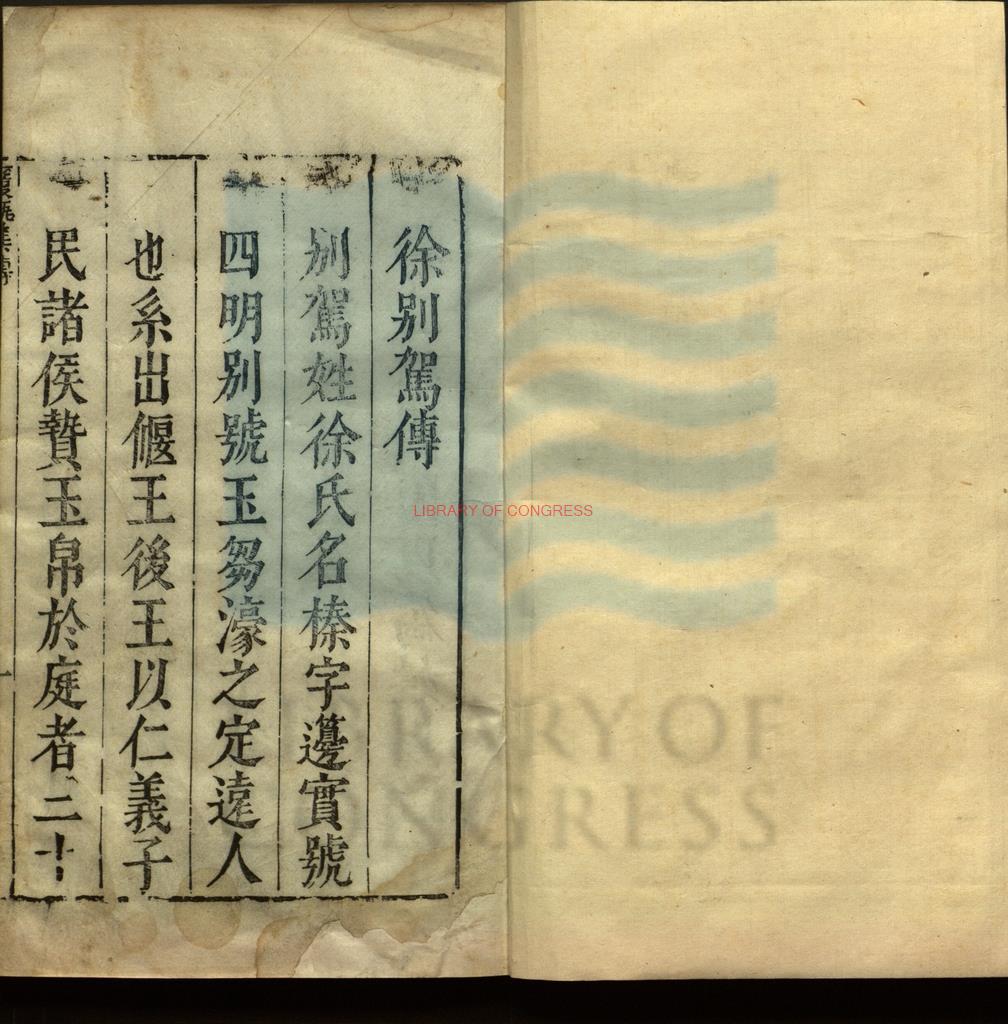 徐别駕傳
别駕姓徐氏名榛字邊實號
四明别號玉芻濠之定遠人
也系出偃王後王以仁義子
民諸侯贄玉帛於庭者二十
LIBRARY OF CONGRESS
LIBRARY OF
CONGRESS